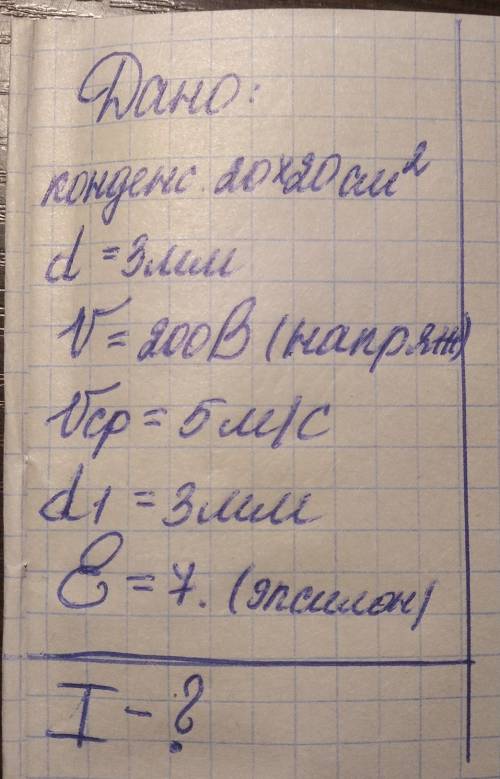 Дано:
конденс. 20×20 см²
d = 3мм
V = 200В (напряж)
Vср = 5 м/с
d1 = 3мм
Ɛ = 7. (эпсилон)
I - ?